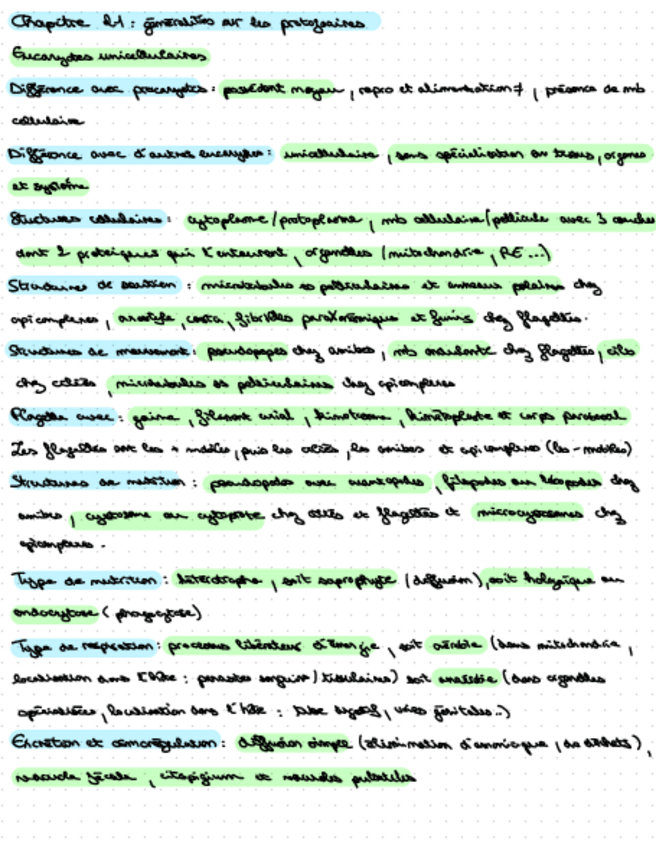 Chapitre 21 : généralités sur les protozoaires
Eucaryotes unicellulaires
Différence avec procaryotes : possèdent noyau, repro et alimentation ≠, présence de mb
cellulaire
Différence avec d'autres eucaryotes : unicellulaire, sans spécialisation en tissus, organes
et système
Structures cellulaires : cytoplasme/protoplasme, mb cellulaire/pellicule avec 3 couches
dont 2 protéiques qui l'entourent, organelles (mitochondrie, RE ...)
Structures de soutien : microtubules ss pelliculaires et anneaux polaires chez
apicomplexes, axostyle, costa, fibrilles paraxonémiques et funis chez flagellés.
Structures de mouvement : pseudopodes chez amibes, mb ondulante chez flagellés, cils
chez ciliés, microtubules ss pelliculaires chez apicomplexes
Flagelle avec : gaine, filament axial, kinétosome, kinétoplaste et corps parabasal
Les flagellés sont les + mobiles, puis les ciliés, les amibes et apicomplexes (les - mobiles)
Structures de nutrition : pseudopodes avec, filopodes ou lobopodes chez
amibes, cytostome ou cytopore chez ciliés et flagellés et chez
apicomplexes.
Type de nutrition : hétérotrophe, soit saprophyte (diffusion), soit holozoïque ou
endocytose (phagocytose)
Type de respiration : processus libérateur d'énergie, soit aérobie (dans mitochondrie,
localisation dans l'hôte : parasites sanguins/tissulaires) soit anaérobie (dans organelles
spécialisées, localisation dans l'hôte : tube digestif, voies génitales..)
Excrétion et osmorégulation : diffusion simple (élimination d'ammoniaque, de déchets),
vacuole fécale, et vacuoles pulsatiles